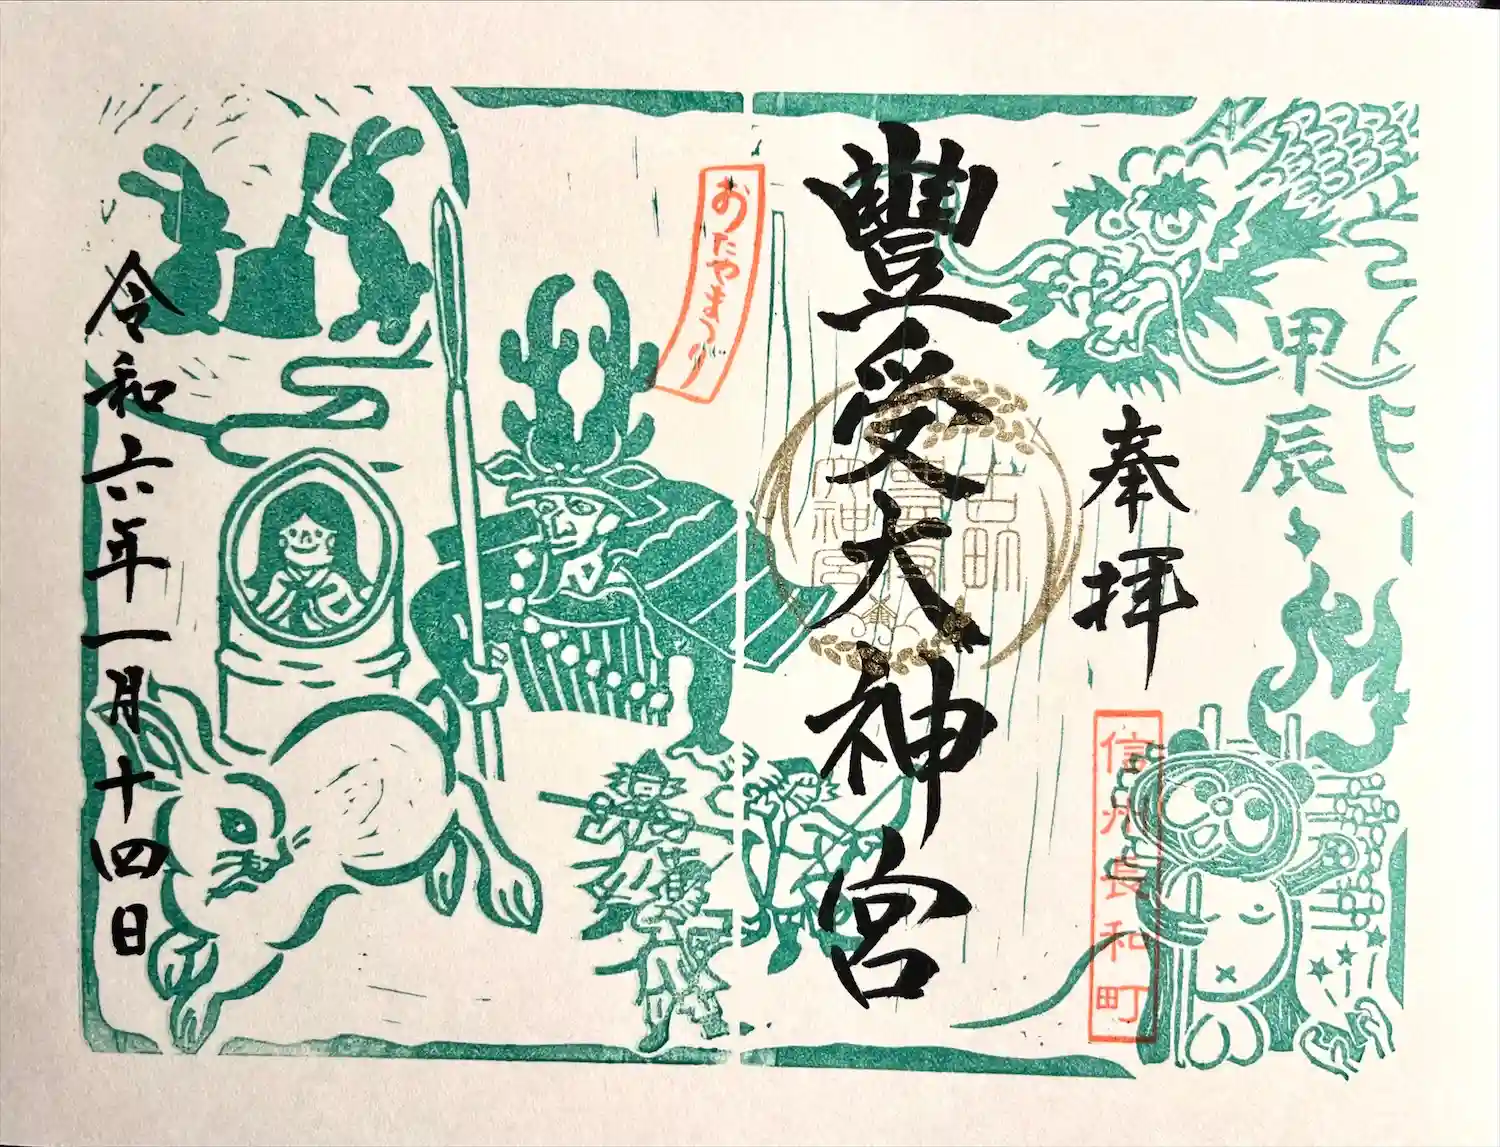 甲辰
奉拝
信州長和町
豐受大神宮
古町
豊受
大神宮
おたやまつり
令和六年一月十四日